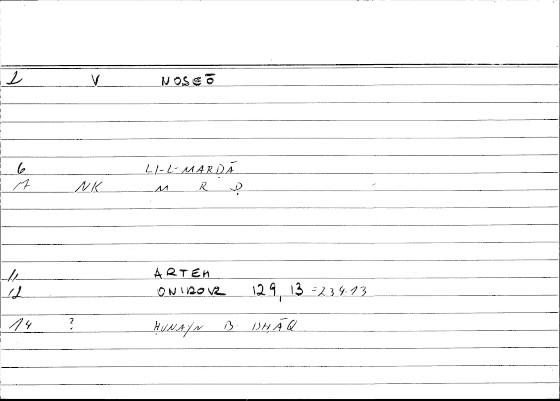 1 V NOSEŌ
6 LI-L-MARḌĀ
7 NK M R Ḍ
11 ARTEM
12 ONIROCR 129, 13 =234.13
14 ? ḤUNAYN B ISḤĀQ